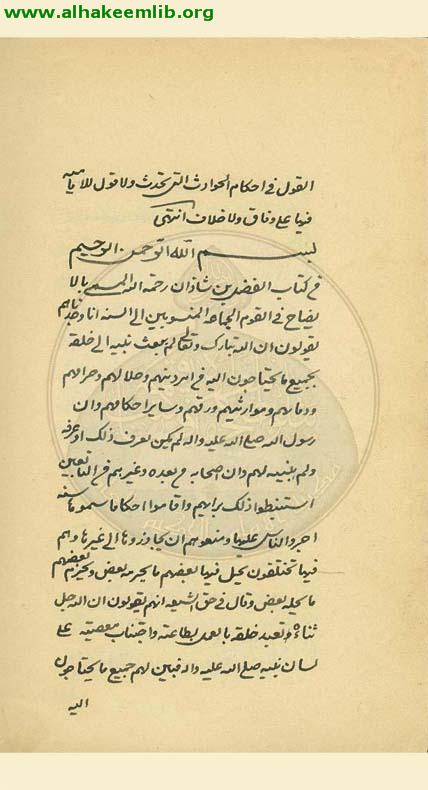 www.alhakeemlib.org
القول في احكام الحوادث التي تحدث ولا قول للامامية
فيها على وفاق ولا خلاف انتهى
بسم الله الرحمن الرحيم
في كتاب الفضل بن شاذان رحمه الله المسمى بالا
يضاح في القوم الجماعة المنسوبين الى السنة انا وجدناهم
يقولون ان الله تبارك وتعالى لم يبعث نبيه الى خلقه
بجميع ما يحتاجون اليه في امر دينهم وحلالهم وحرامهم
ودمائهم ومواريثهم ورقهم وساير احكامهم وان
رسول الله صلى الله عليه واله لم يكن يعرف ذلك او عرفه
ولم يبنيه لهم وان اصحابه من بعده وغيرهم من التابعين
استنبطوا ذلك برايهم واقاموا احكاما سموها سنة
اجروا الناس عليها ومنعوهم ان يجاوزوها الى غيرها وهم
فيها مختلفون يحل فيها بعضهم ما يحرمه بعض ويحرم بعضهم
ما يحله بعض وقال في حق الشيعه انهم يقولون ان الله جل
ثناؤه تعبد خلقه بالعمل بطاعته واجتناب معصيته على
لسان نبيه صلى الله عليه واله فبين لهم جميع ما يحتاجون
اليه